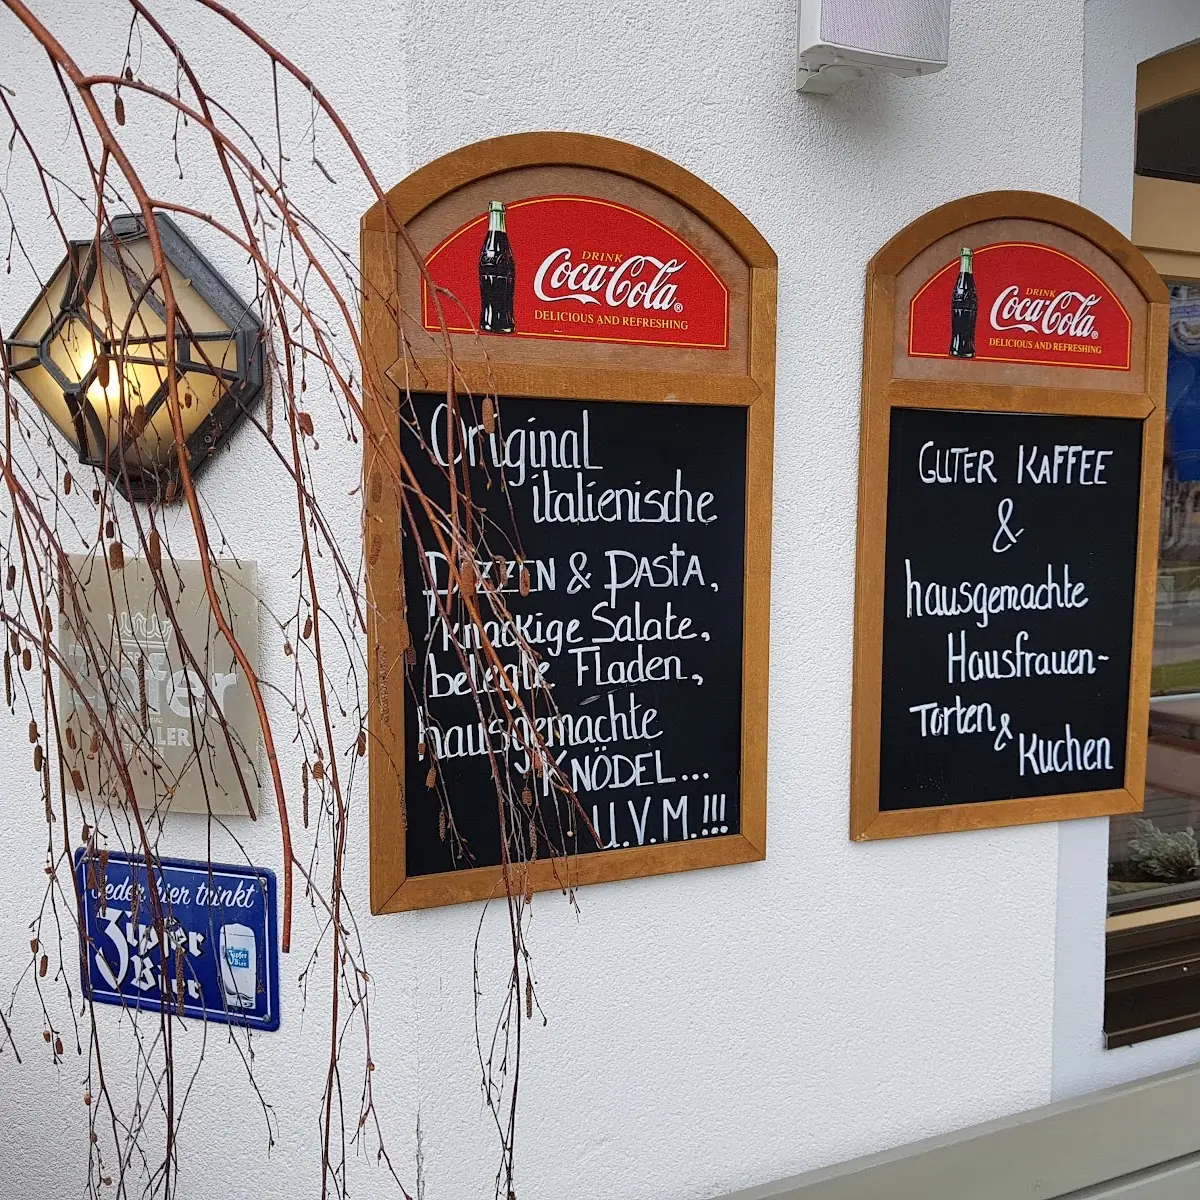 DRINK
Coca-Cola®
DELICIOUS AND REFRESHING
Original
italienische
PIZZEN & PASTA,
knackige Salate,
belegte Fladen,
hausgemachte
KNÖDEL...
U.V.M.!!!
DRINK
Coca-Cola®
DELICIOUS AND REFRESHING
GUTER KAFFEE
&
hausgemachte
Hausfrauen-
Torten &
Kuchen
Zipfer
Jeder hier trinkt
Zipfer
Bier
Zipfer
Bier